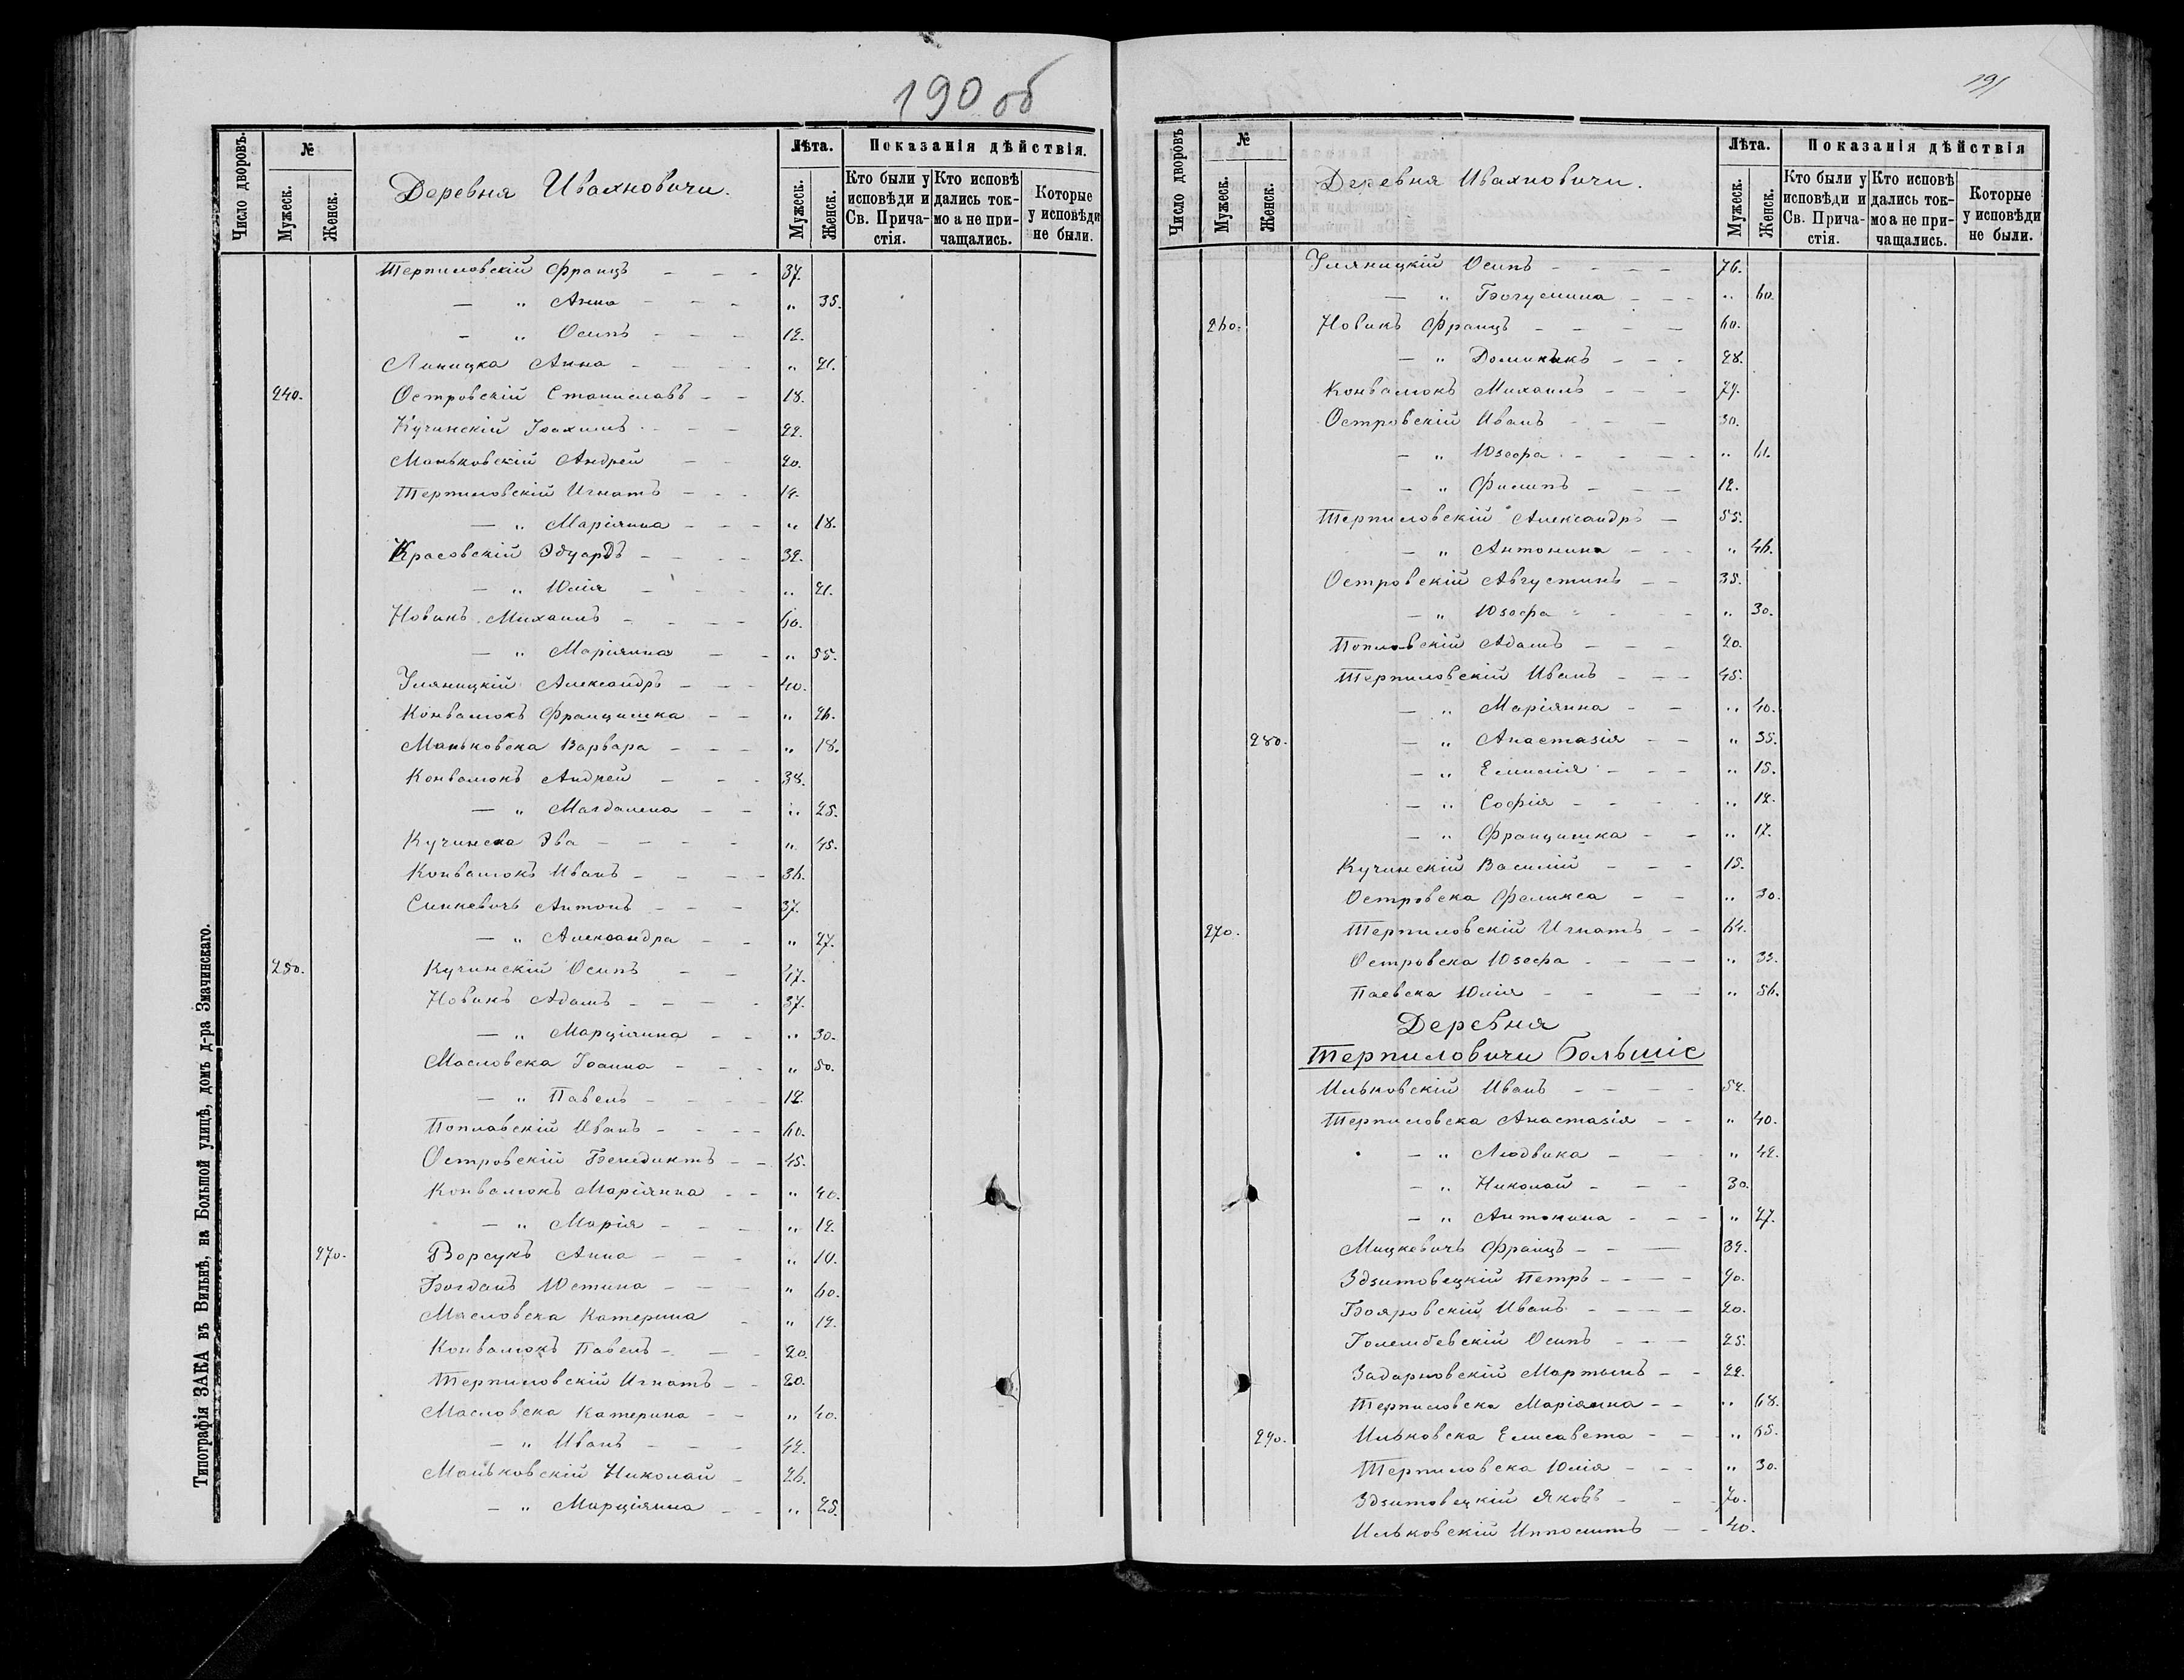 190 об
Число дворовъ.
№
Мужеск.
Женск.
Деревня Ивахновичи.
Лѣта.
Мужеск.
Женск.
Показанія дѣйствія.
Кто были у исповѣди и Св. Прича-стія.
Кто исповѣ дались ток-мо а не при-чащались.
Которые у исповѣди не были.
Терпиловскій Францъ - - - 37.
— „ Анна - - - „ 35.
- „ Осипъ - - - 12.
Линицка Анна - - - - „ 21.
240. Островскій Станиславъ - - 18.
Кучинскій Іоахимъ - - - 22.
Маньковскій Андрей - - 20.
Терпиловскій Игнатъ - - - 14.
— „ Маріянна - - - „ 18.
Красовскій Эдуардъ - - - - 32.
— „ Юлія - - - - „ 21.
Новикъ Михаилъ - - - - 60.
— „ Маріянна - - „ 55.
Уляницкій Александръ - - - 40.
Конвалюкъ Францишка - - „ 26.
Маньковска Варвара - - - „ 18.
Конвалюкъ Андрей - - - 38.
— „ Магдалена - - „ 25.
Кучинска Эва - - - - „ 45.
Конвалюкъ Иванъ - - - - 36.
Синкевичъ Антонъ - - - 37.
— „ Александра - - „ 27.
250. Кучинскій Осипъ - - 47.
Новикъ Адамъ - - - - 37.
— „ Марціянна - - „ 30.
Масловска Іоанна - - - „ 50.
— „ Павелъ - - - - 12.
Поплавскій Иванъ - - - - 60.
Островскій Бенедиктъ - - 45.
Конвалюкъ Маріянна - - „ 40.
— „ Марія - - - „ 12.
270. Борсукъ Анна - - - „ 10.
Богданъ Юстина - - - „ 60.
Масловска Катерина - „ 12.
Конвалюкъ Павелъ - - - 20.
Терпиловскій Игнатъ - - 20.
Масловска Катерина - - „ 40.
— „ Иванъ - - - 42.
Маньковскій Николай - 26.
— „ Марціянна - - „ 25.
Типографія ЗАКА въ Вильнѣ, на Большой улицѣ, домъ д-ра Змачинскаго.
191
Число дворовъ
№
Мужеск.
Женск.
Деревня Ивахновичи.
Лѣта.
Мужеск.
Женск.
Показанія дѣйствія
Кто были у исповѣди и Св. Прича-стія.
Кто исповѣ дались ток-мо а не при-чащались.
Которые у исповѣди не были.
Уляницкій Осипъ - - - - 76.
— „ Богумила - - - „ 60.
260. Новикъ Францъ - - - - 60.
— „ Доминикъ - - - 28.
Конвалюкъ Михаилъ - - - 74.
Островскій Иванъ - - - 30.
— „ Юзефа - - - - „ 61.
— „ Филипъ - - - 12.
Терпиловскій Александръ - 55.
— „ Антонина - - - „ 46.
Островскій Августинъ - - 35.
— „ Юзефа - - - „ 30.
Поплавскій Адамъ - - - 20.
Терпиловскій Иванъ - - - 45.
— „ Маріянна - - „ 40.
280. — „ Анастазія - - „ 35.
— „ Емилія - - - „ 15.
— „ Софія - - - - „ 12.
— „ Францишка - - „ 17.
Кучинскій Василій - - - 15.
Островска Феликса - - „ 30.
270. Терпиловскій Игнатъ - - 64.
Островска Юзефа - - - - „ 33.
Паевска Юлія - - - - „ 56.
Деревня
Терпиловичи Большіе
Ильковскій Иванъ - - - - 52.
Терпиловска Анастазія - - „ 40.
— „ Людвика - - - „ 42.
— „ Николай - - - 30.
— „ Антонина - - - „ 27.
Мицкевичъ Францъ - - - 32.
Здзитовецкій Петръ - - - - 90.
Бояровскій Иванъ - - - - 20.
Голембевскій Осипъ - - - 25.
Задарновскій Мартынъ - - 22.
Терпиловска Маріянна - - „ 68.
290. Ильковска Елисавета - - „ 65.
Терпиловска Юлія - - - „ 30.
Здзитовецкій Яковъ - - 70.
Ильковскій Ипполитъ - - 40.